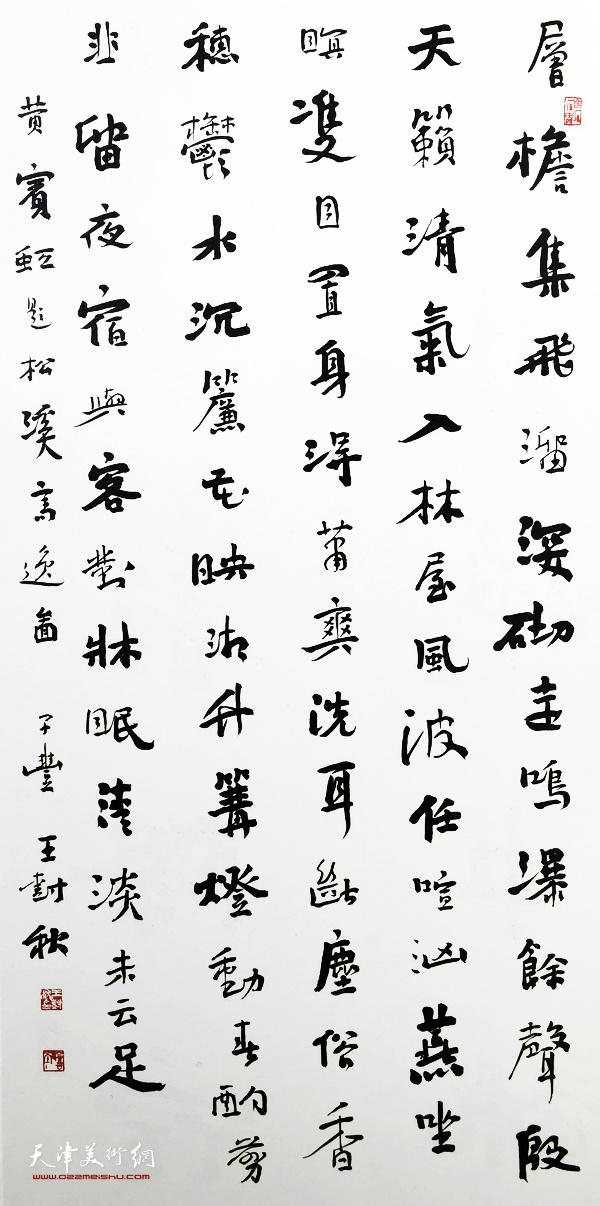 層檐集飛溜深砌走鳴瀑餘聲殷
天籟清氣入林屋風波任喧汹燕坐
瞑雙目置身得蕭爽洗耳斷塵俗香
穗鬱水沉簾花映湘竹篝燈動春酌剪
韭留夜宿與客對牀眠清淡未云足
黄賓虹題松溪高逸圖 子豐 王樹秋
天津美術網
www.022meishu.com